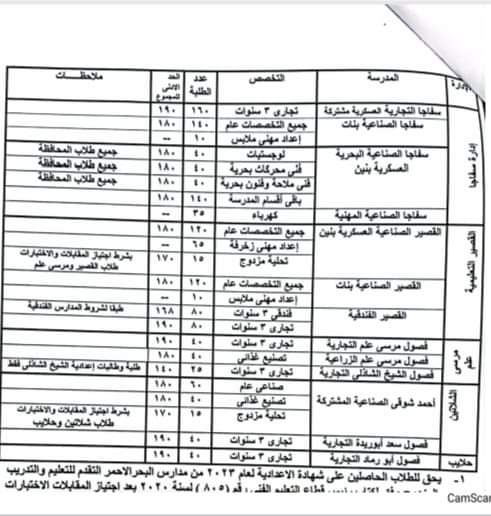 إدارة المدرسة التخصص عدد الطلبة الحد الادنى للمجموع ملاحظات
إدارة سفاجا
سفاجا التجارية العسكرية مشتركة تجارى ٣ سنوات ١٦٠ ١٩٠
سفاجا الصناعية بنات جميع التخصصات عام ١٤٠ ١٨٠
إعداد مهنى ملابس ١٠ --
سفاجا الصناعية البحرية العسكرية بنين لوجستيات ٤٠ ١٨٠ جميع طلاب المحافظة
فنى محركات بحرية ٤٠ ١٨٠ جميع طلاب المحافظة
فنى ملاحة وفنون بحرية ٤٠ ١٨٠ جميع طلاب المحافظة
باقى أقسام المدرسة ١٤٠ ١٨٠
سفاجا الصناعية المهنية كهرباء ٣٥ --
القصير التعليمية
القصير الصناعية العسكرية بنين جميع التخصصات عام ١٢٠ ١٨٠
إعداد مهنى زخرفة ٦٥ --
تحلية مزدوج ١٥ ١٧٠ بشرط اجتياز المقابلات والاختبارات طلاب القصير ومرسى علم
القصير الصناعية بنات جميع التخصصات عام ١٢٠ ١٨٠
إعداد مهنى ملابس ١٠ --
القصير الفندقية فندقى ٣ سنوات ٨٠ ١٦٨ طبقا لشروط المدارس الفندقية
تجارى ٣ سنوات ٨٠ ١٩٠
مرسى علم
فصول مرسى علم التجارية تجارى ٣ سنوات ٤٠ ١٩٠
فصول مرسى علم الزراعية تصنيع غذائى ٤٠ ١٨٠
فصول الشيخ الشاذلى التجارية تجارى ٣ سنوات ٢٥ ١٤٠ طلبة وطالبات إعدادية الشيخ الشاذلى فقط
الشلاتين
أحمد شوقى الصناعية المشتركة صناعى عام ٦٠ ١٨٠
تصنيع غذائى ٤٠ ١٨٠
تحلية مزدوج ١٥ ١٧٠ بشرط اجتياز المقابلات والاختبارات طلاب شلاتين وحلايب
فصول سعد أبوريدة التجارية تجارى ٣ سنوات ٤٠ ١٩٠
حلايب فصول أبو رماد التجارية تجارى ٣ سنوات ٤٠ ١٩٠
١- يحق للطلاب الحاصلين على شهادة الاعدادية لعام ٢٠٢٣ من مدارس البحرالاحمر التقدم للتعليم والتدريب
رئيس قطاع التعليم الفنى رقم (٨٠٥) لسنة ٢٠٢٠ بعد اجتياز المقابلات الاختبارات
CamScan